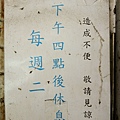 造成不便　敬請見諒
下午四點後休息
每週二